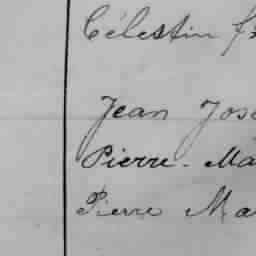 Célestin
Jean Jose
Pierre-Ma
Pierre Ma